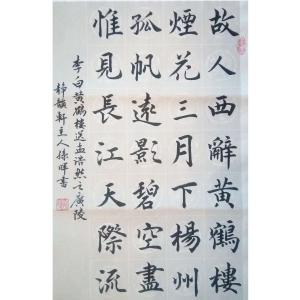 故人西辭黃鶴樓
煙花三月下楊州
孤帆遠影碧空盡
惟見長江天際流
李白黃鶴樓送孟浩然之廣陵
靜韻軒主人徐暉書